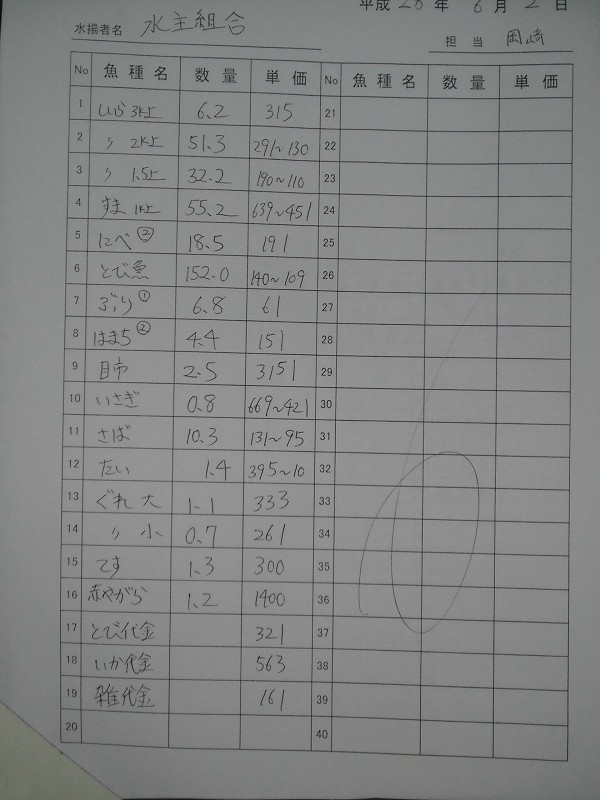 平成 28 年 6 月 2 日
水揚者名 水主組合
担当 岡崎
No 魚種名 数量 単価 No 魚種名 数量 単価
1 しいら 3k上 6.2 315 21
2 〃 2k上 51.3 291~130 22
3 〃 1.5上 32.2 190~110 23
4 すま 1k上 55.2 639~451 24
5 にべ ② 18.5 191 25
6 とび魚 152.0 140~109 26
7 ぶり ① 6.8 61 27
8 はまち ② 4.4 151 28
9 目市 2.5 3151 29
10 いさぎ 0.8 669~421 30
11 さば 10.3 131~95 31
12 たい 1.4 395~10 32
13 ぐれ 大 1.1 333 33
14 〃 小 0.7 261 34
15 てす 1.3 300 35
16 赤やがら 1.2 1400 36
17 とび代金 321 37
18 いか代金 563 38
19 雑代金 161 39
20 40